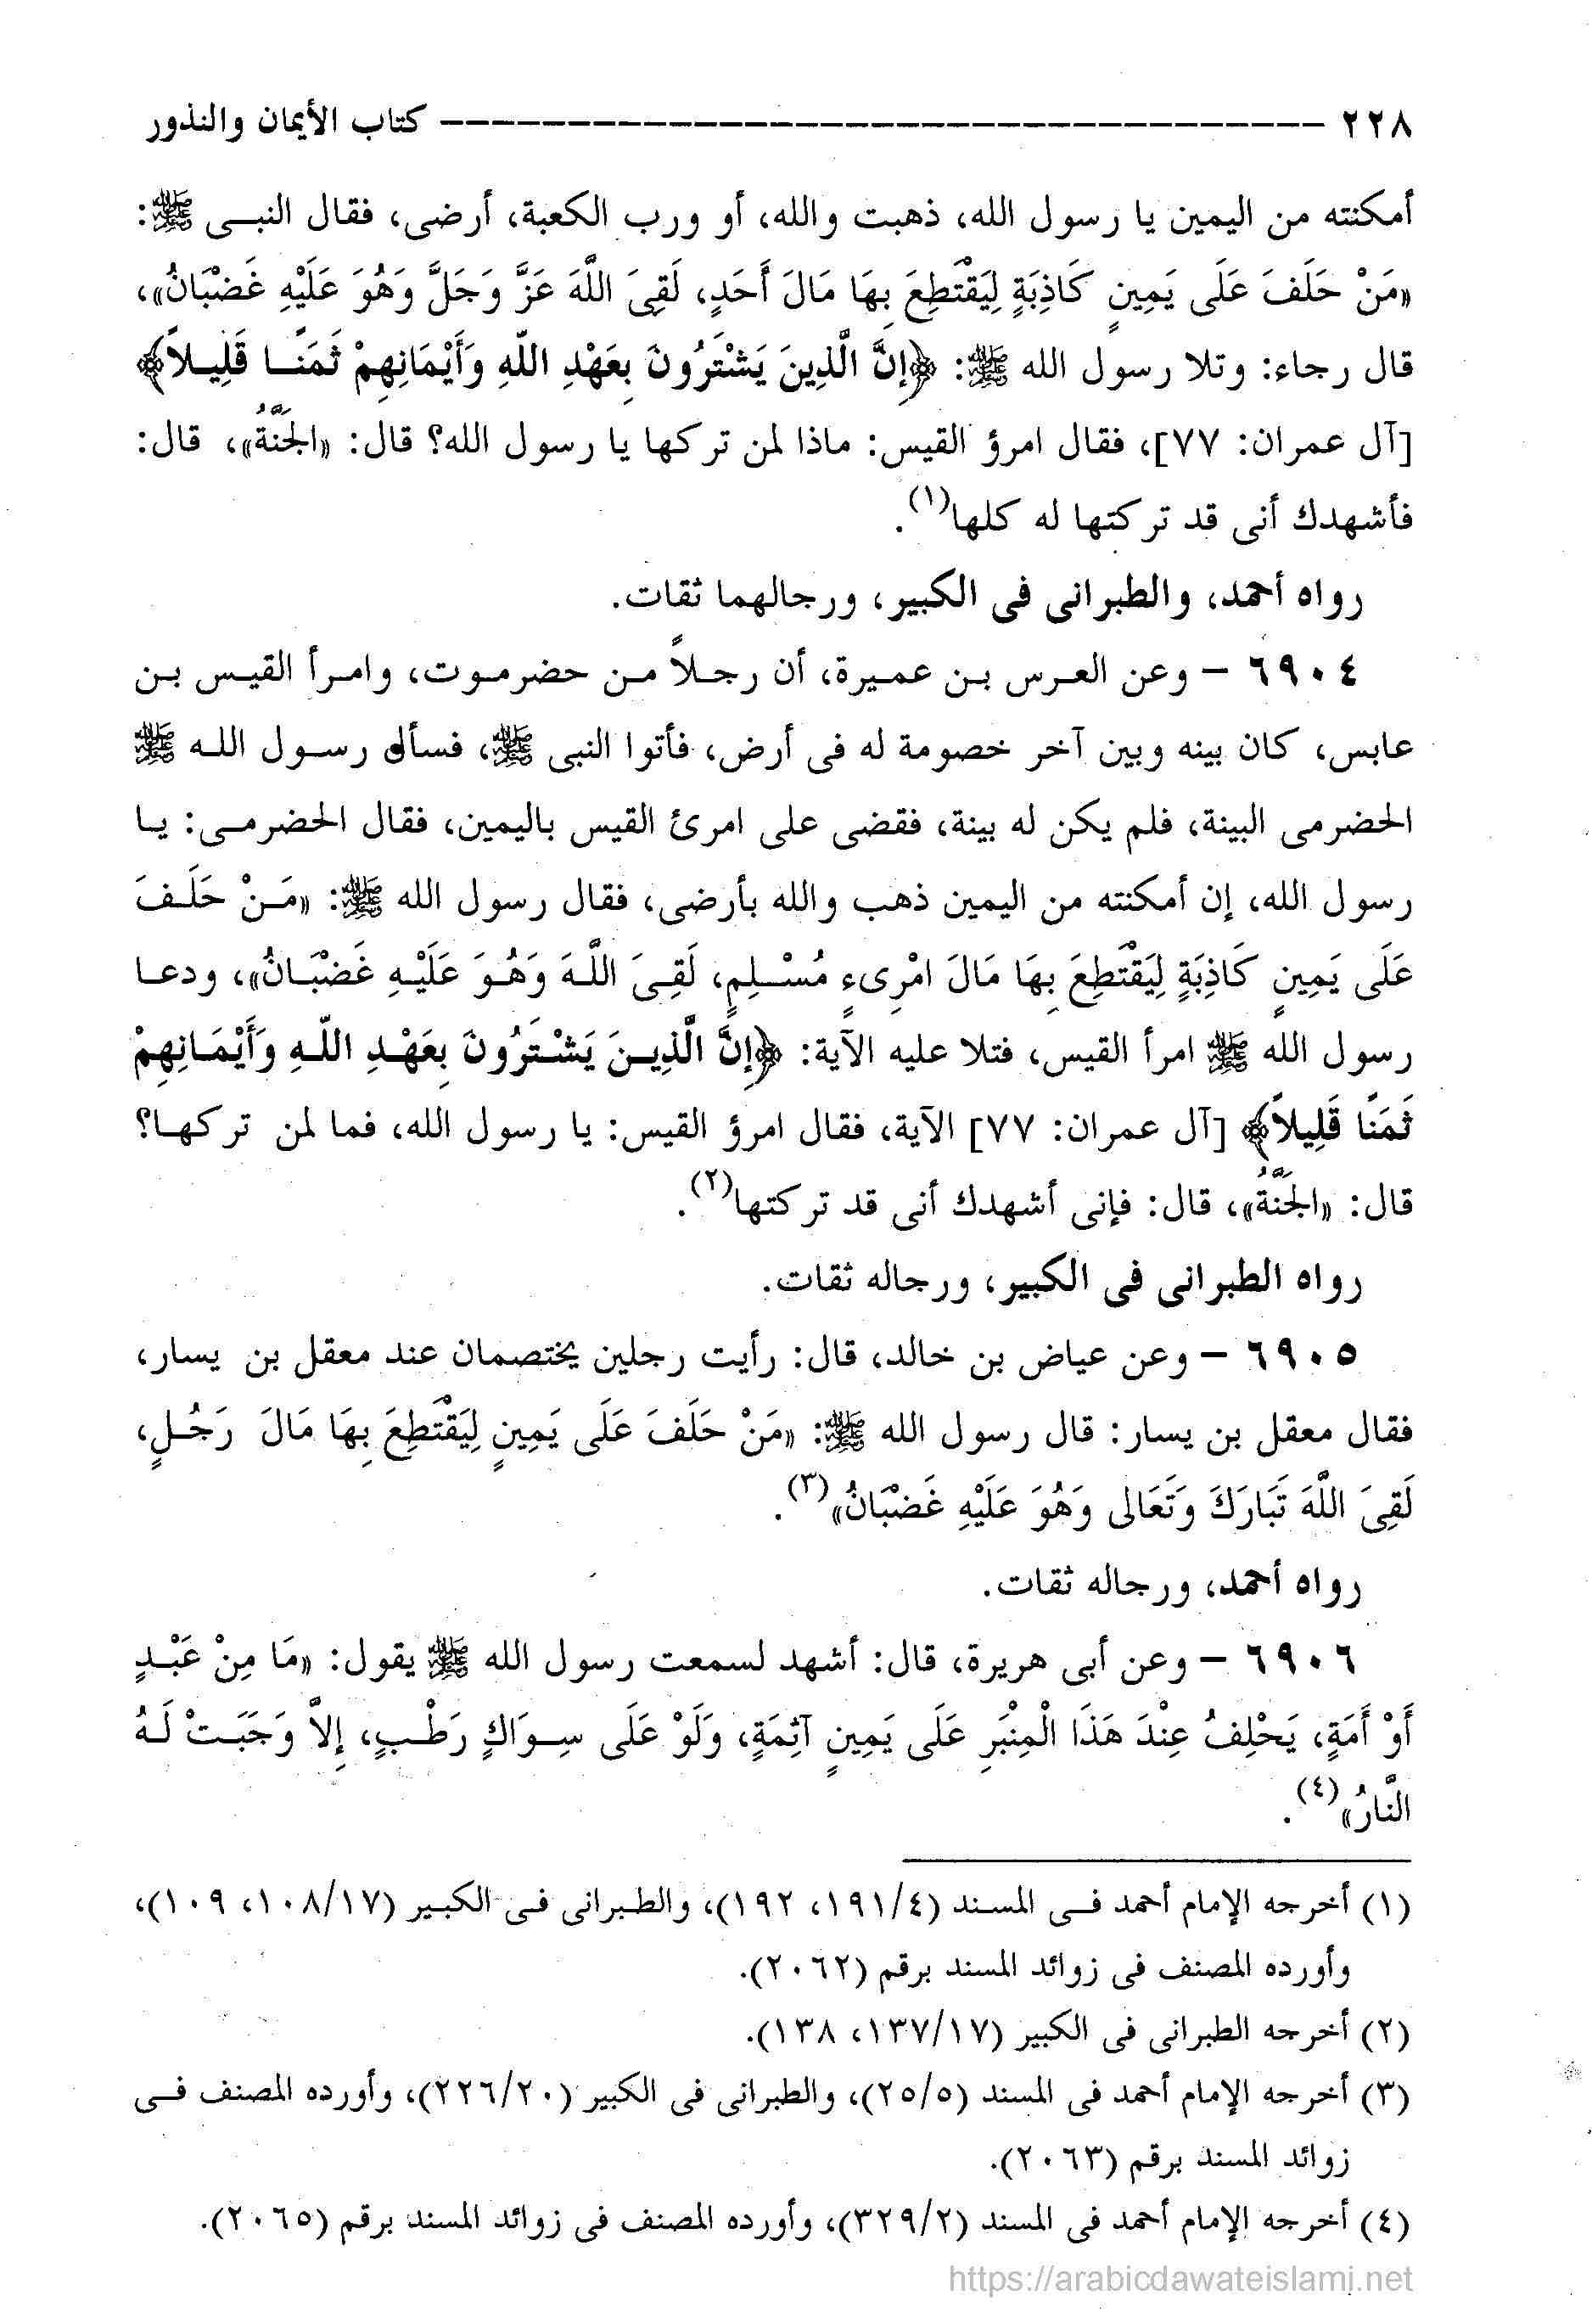 ٢٢٨ ----------------------------------- كتاب الأيمان والنذور
أمكنته من اليمين يا رسول الله، ذهبت والله، أو ورب الكعبة، أرضى، فقال النبى ﷺ:
«مَنْ حَلَفَ عَلَى يَمِينٍ كَاذِبَةٍ لِيَقْتَطِعَ بِهَا مَالَ أَحَدٍ، لَقِىَ اللَّهَ عَزَّ وَجَلَّ وَهُوَ عَلَيْهِ غَضْبَانُ»،
قال رجاء: وتلا رسول الله ﷺ: ﴿إِنَّ الَّذِينَ يَشْتَرُونَ بِعَهْدِ اللَّهِ وَأَيْمَانِهِمْ ثَمَنًا قَلِيلاً﴾
[آل عمران: ٧٧]، فقال امرؤ القيس: ماذا لمن تركها يا رسول الله؟ قال: «الجَنَّةُ»، قال:
فأشهدك أنى قد تركتها له كلها(١).
رواه أحمد، والطبرانى فى الكبير، ورجالهما ثقات.
٦٩٠٤ - وعن العرس بن عميرة، أن رجلاً من حضرموت، وامرأ القيس بن
عابس، كان بينه وبين آخر خصومة له فى أرض، فأتوا النبى ﷺ، فسأل رسول الله ﷺ
الحضرمى البينة، فلم يكن له بينة، فقضى على امرئ القيس باليمين، فقال الحضرمى: يا
رسول الله، إن أمكنته من اليمين ذهب والله بأرضى، فقال رسول الله ﷺ: «مَنْ حَلَفَ
عَلَى يَمِينٍ كَاذِبَةٍ لِيَقْتَطِعَ بِهَا مَالَ امْرِىءٍ مُسْلِمٍ، لَقِىَ اللَّهَ وَهُوَ عَلَيْهِ غَضْبَانُ»، ودعا
رسول الله ﷺ امرأ القيس، فتلا عليه الآية: ﴿إِنَّ الَّذِينَ يَشْتَرُونَ بِعَهْدِ اللَّهِ وَأَيْمَانِهِمْ
ثَمَنًا قَلِيلاً﴾ [آل عمران: ٧٧] الآية، فقال امرؤ القيس: يا رسول الله، فما لمن تركها؟
قال: «الجَنَّةُ»، قال: فإنى أشهدك أنى قد تركتها(٢).
رواه الطبرانى فى الكبير، ورجاله ثقات.
٦٩٠٥ - وعن عياض بن خالد، قال: رأيت رجلين يختصمان عند معقل بن يسار،
فقال معقل بن يسار: قال رسول الله ﷺ: «مَنْ حَلَفَ عَلَى يَمِينٍ لِيَقْتَطِعَ بِهَا مَالَ رَجُلٍ،
لَقِىَ اللَّهَ تَبَارَكَ وَتَعَالى وَهُوَ عَلَيْهِ غَضْبَانُ»(٣).
رواه أحمد، ورجاله ثقات.
٦٩٠٦ - وعن أبى هريرة، قال: أشهد لسمعت رسول الله ﷺ يقول: «مَا مِنْ عَبْدٍ
أَوْ أَمَةٍ، يَحْلِفُ عِنْدَ هَذَا الْمِنْبَرِ عَلَى يَمِينٍ آثِمَةٍ، وَلَوْ عَلَى سِوَاكٍ رَطْبٍ، إِلاَّ وَجَبَتْ لَهُ
النَّارُ»(٤).
(١) أخرجه الإمام أحمد فى المسند (١٩١/٤، ١٩٢)، والطبرانى فى الكبير (١٠٨/١٧، ١٠٩)،
وأورده المصنف فى زوائد المسند برقم (٢٠٦٢).
(٢) أخرجه الطبرانى فى الكبير (١٣٧/١٧، ١٣٨).
(٣) أخرجه الإمام أحمد فى المسند (٢٥/٥)، والطبرانى فى الكبير (٢٢٦/٢٠)، وأورده المصنف فى
زوائد المسند برقم (٢٠٦٣).
(٤) أخرجه الإمام أحمد فى المسند (٣٢٩/٢)، وأورده المصنف فى زوائد المسند برقم (٢٠٦٥).
https://arabicdawateislami.net